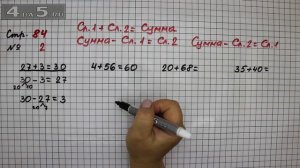 4 на 5.ru
Стр. 84
№ 2
Сл.1 + Сл.2 = Сумма
Сумма - Сл.1 = Сл.2 Сумма - Сл.2 = Сл.1
27+3=30 4+56=60 20+68= 35+40=
30-3=27
30-27=3